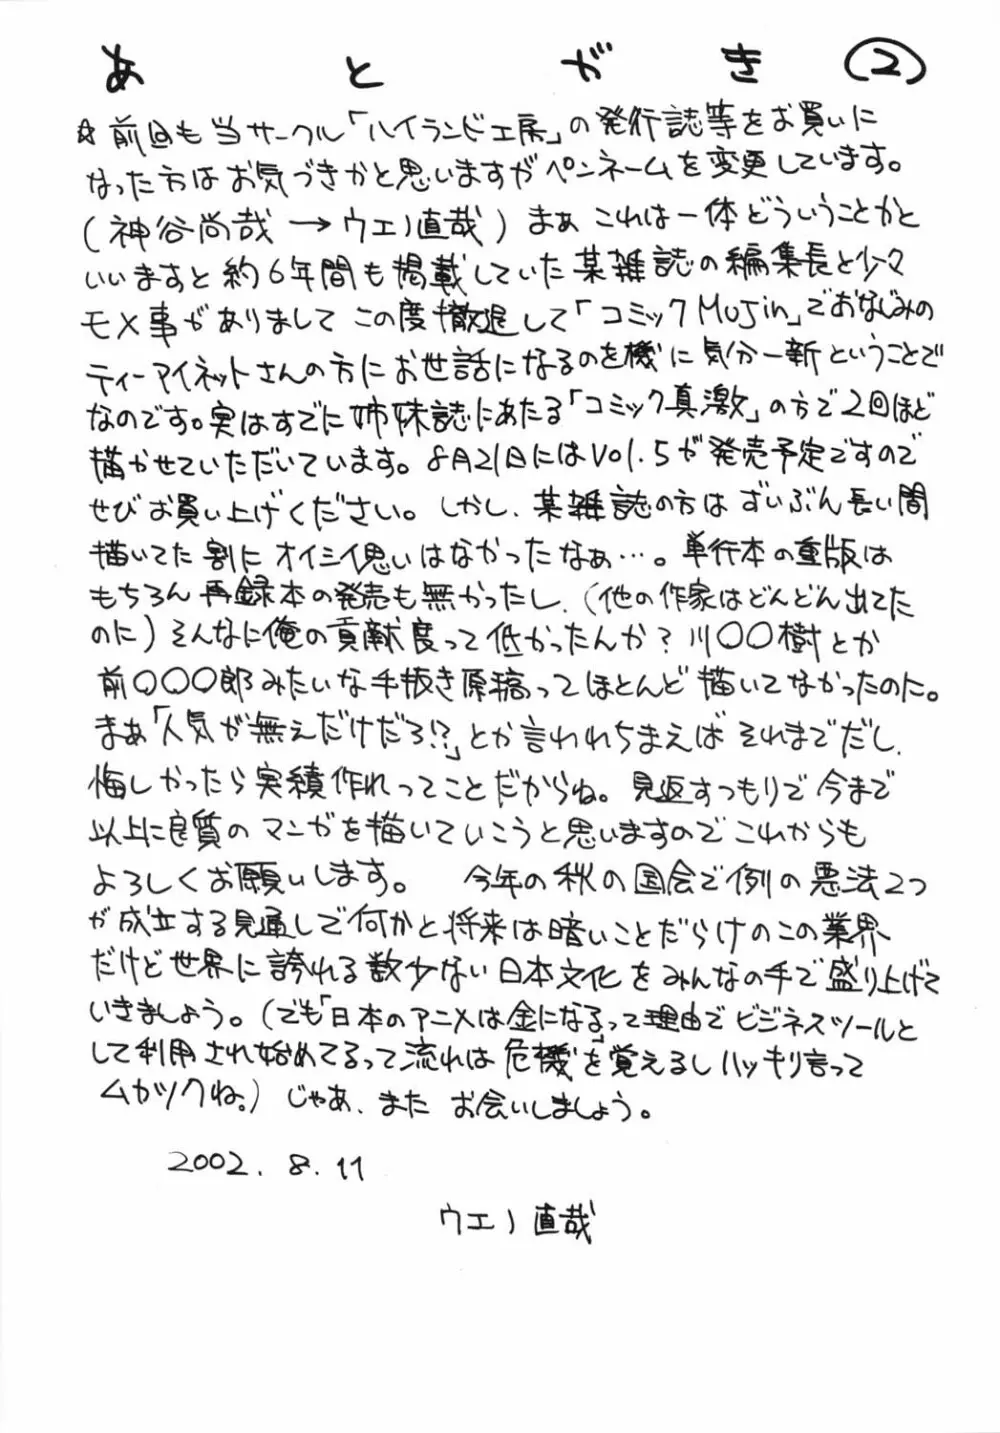 あとがき②
☆前回も当サークル「ハイランド工房」の発行誌等をお買いに
なった方はお気づきかと思いますがペンネームを変更しています。
(神谷尚哉→ウエノ直哉)まぁこれは一体どういうことかと
いいますと約6年間も掲載していた某雑誌の編集長と少々
モメ事がありましてこの度撤退して「コミックMujin」でおなじみの
ティーアイネットさんの方にお世話になるのを機に気分一新ということで
なのです。実はすでに姉妹誌にあたる「コミック真激」の方で2回ほど
描かせていただいています。8月21日にはVol.5が発売予定ですので
ぜひお買い上げください。しかし、某雑誌の方はずいぶん長い間
描いてた割にオイシイ思いはなかったなぁ…。単行本の重版は
もちろん再録本の発売も無かったし、(他の作家はどんどん出てた
のに)そんなに俺の貢献度って低かったんか?川〇〇樹とか
前〇〇〇郎みたいな手抜き原稿ってほとんど描いてなかったのに。
まぁ「人気が無えだけだろ!?」とか言われちまえばそれまでだし、
悔しかったら実績作れってことだからね。見返すつもりで今まで
以上に良質のマンガを描いていこうと思いますのでこれからも
よろしくお願いします。 今年の秋の国会で例の悪法2つ
が成立する見通しで何かと将来は暗いことだらけのこの業界
だけど世界に誇れる数少ない日本文化をみんなの手で盛り上げて
いきましょう。(でも「日本のアニメは金になる」って理由でビジネスツールと
して利用され始めてるって流れは危機を覚えるしハッキリ言って
ムカツクね。)じゃあ、またお会いしましょう。
2002.8.11
ウエノ直哉